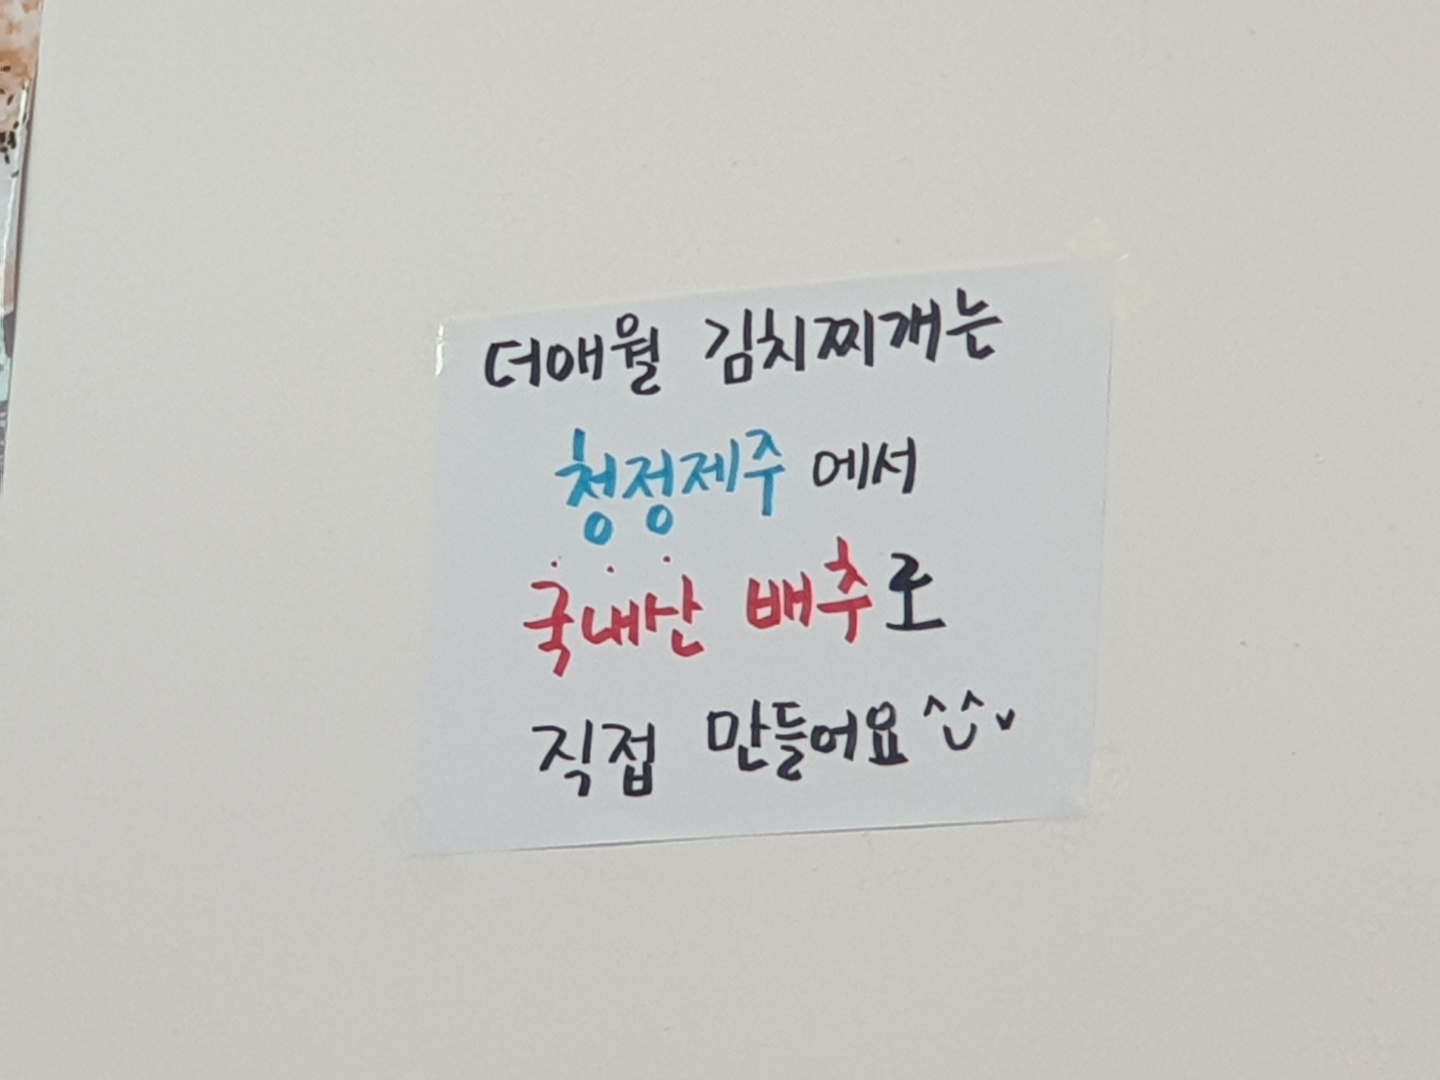 더애월 김치찌개는
청정제주에서
국내산 배추로
직접 만들어요^^